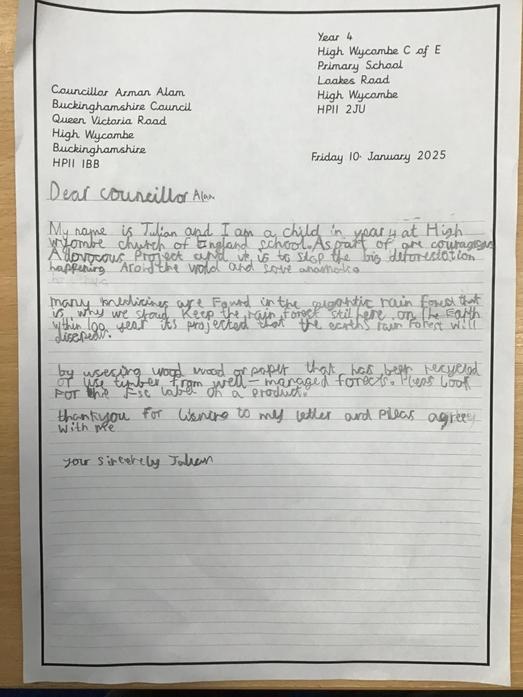 Year 4
High Wycombe C of E
Primary School
Loakes Road
High Wycombe
HP11 2JU
Councillor Arman Alam
Buckinghamshire Council
Queen Victoria Road
High Wycombe
Buckinghamshire
HP11 1BB
Friday 10 January 2025
Dear councillor Alam
My name is Julian and I am a child in year 4 at High
wycombe church of England school. As part of are courageous
Advocacy Project and it is to stop the big deforestation
happening Around the wold and save
many medicines are Found in the gigantic rain forest that
is why we stoud keep the rain forest still here on the Earth
within 100 year its projected that the earths rain Forest will
by usecing wood wood or paper that has been recycled
or use timber from well-managed forests. Pleas look
For the Fsc label on a product.
thankyou For lisning to my letter and Pleas agree
with me
your sincerely Julian